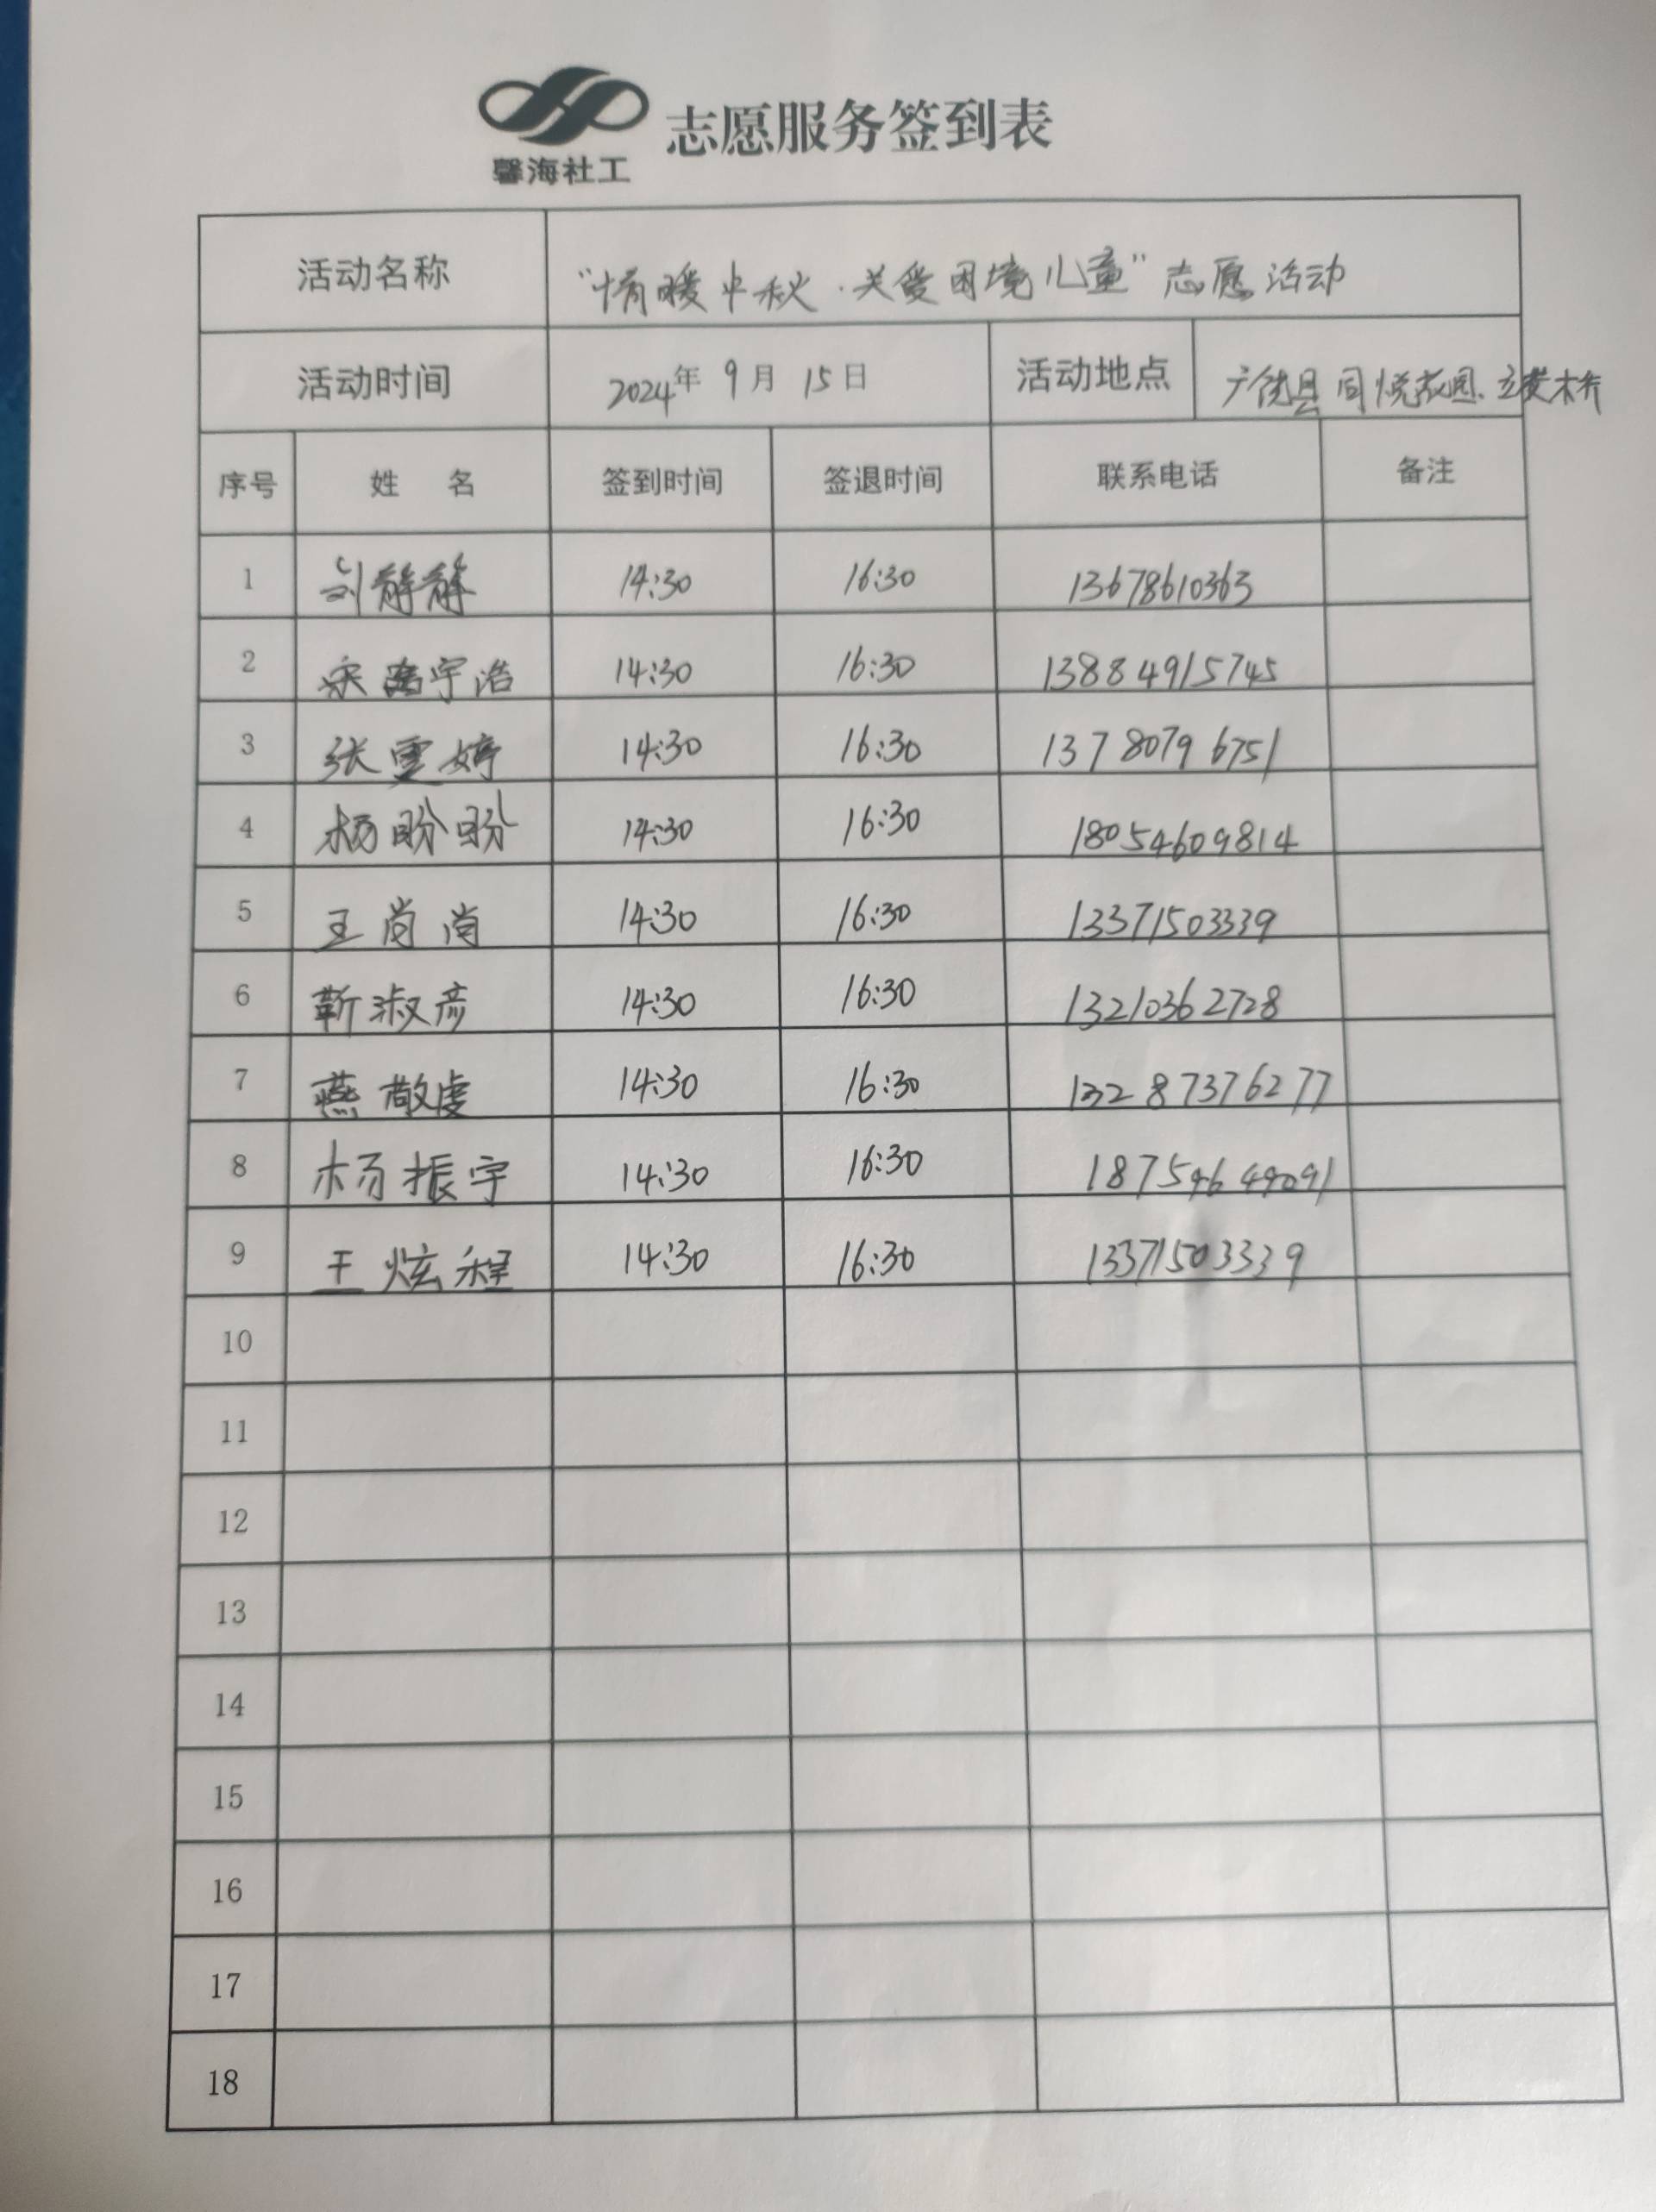 馨海社工
志愿服务签到表
活动名称 “情暖中秋·关爱困境儿童”志愿活动
活动时间 2024年 9月 15日 活动地点 广饶县同悦花园、
序号 姓 名 签到时间 签退时间 联系电话 备注
1 刘静静 14:30 16:30 13678610363
2 宋宇浩 14:30 16:30 13884915745
3 张雪婷 14:30 16:30 13780796751
4 杨盼盼 14:30 16:30 18054609814
5 王尚尚 14:30 16:30 13371503339
6 靳淑彦 14:30 16:30 13210362728
7 燕敬虔 14:30 16:30 13287376277
8 杨振宇 14:30 16:30 18754649091
9 王炫程 14:30 16:30 13371503339
10
11
12
13
14
15
16
17
18